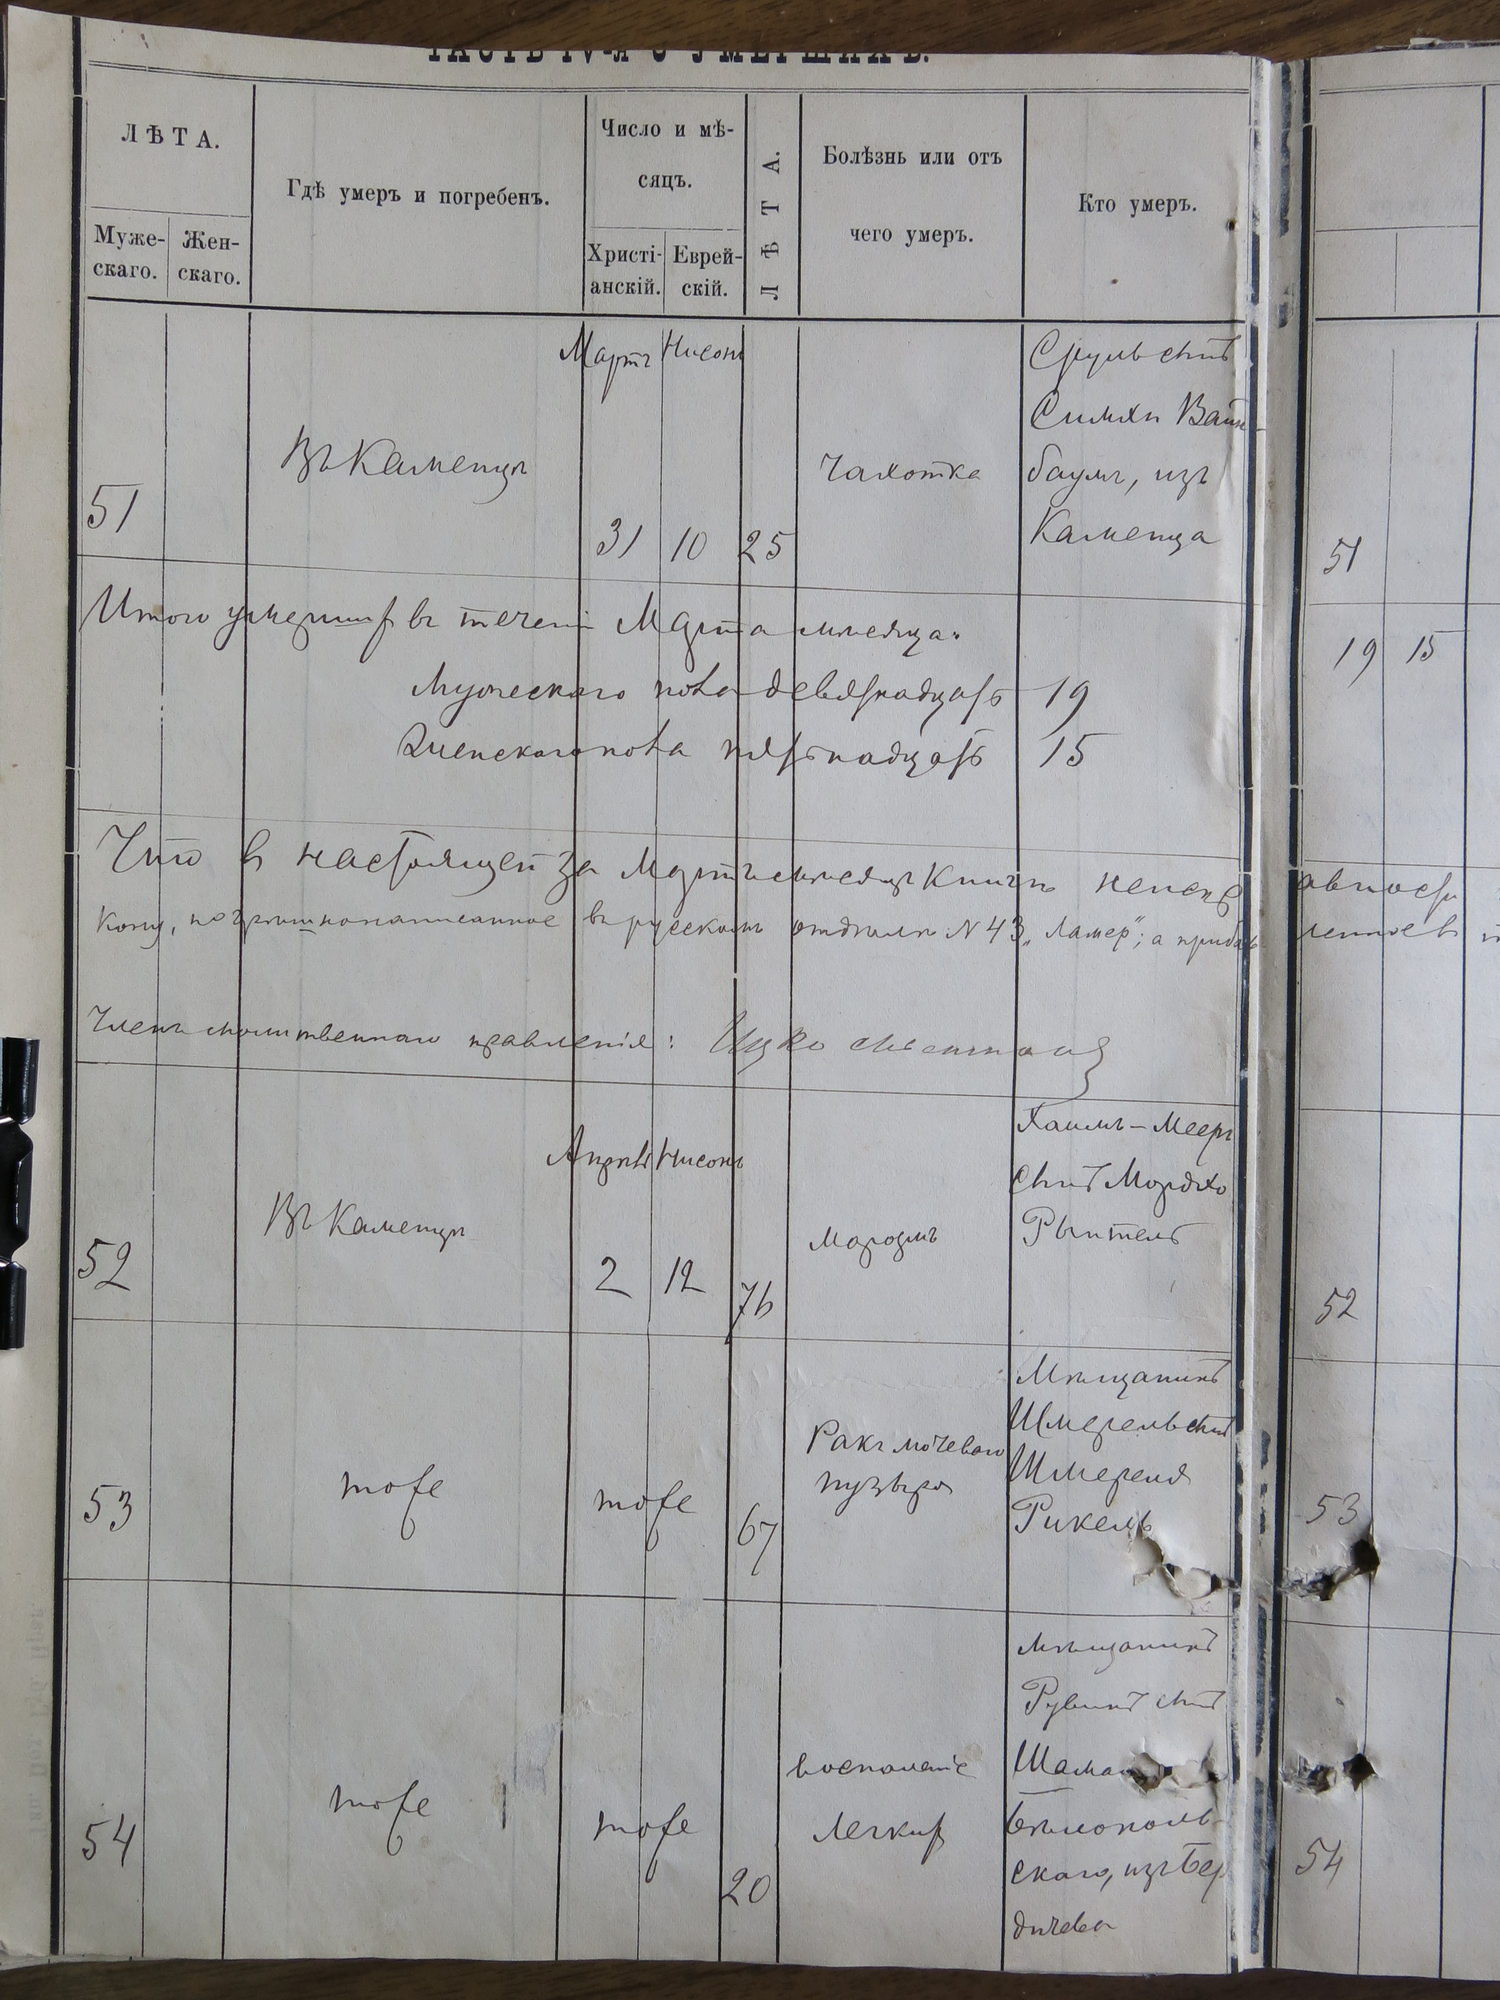 ЧАСТЬ IV-я О УМЕРШИХЪ.
ЛѢТА.
Муже-
скаго.
Жен-
скаго.
Гдѣ умеръ и погребенъ.
Число и мѣ-
сяцъ.
Христі-
анскій.
Еврей-
скій.
ЛѢТА.
Болѣзнь или отъ
чего умеръ.
Кто умеръ.
51
Въ Каменцѣ
Мартъ
31
Нисонъ
10
25
Чахотка
Сруль сынъ
Симхи Вайн-
баумъ, изъ
Каменца
51
Итого умершихъ въ течении Марта мѣсяца:
Мужескаго пола девятнадцать 19
Женскаго пола пятьнадцать 15
19 15
Что в настоящей за Мартъ мѣсяцъ книгѣ
кому, по въ русскомъ отдѣлѣ N 43 „Ламер"; а
Членъ молитвеннаго правленія: Ицко
52
Въ Каменцѣ
Апрѣль
2
Нисонъ
12
76
Маразмъ
Хаимъ-Мееръ
сынъ Мордко
52
53
тоже
тоже
67
Ракъ мочеваго
пузыря
Мѣщанинъ
Шмерель сынъ
Шмереля
Рикель
53
54
тоже
тоже
20
воспаленіе
легкихъ
Мѣщанинъ
Рувинъ сынъ
Бѣлополь-
скаго, изъ Бер
дичева
54